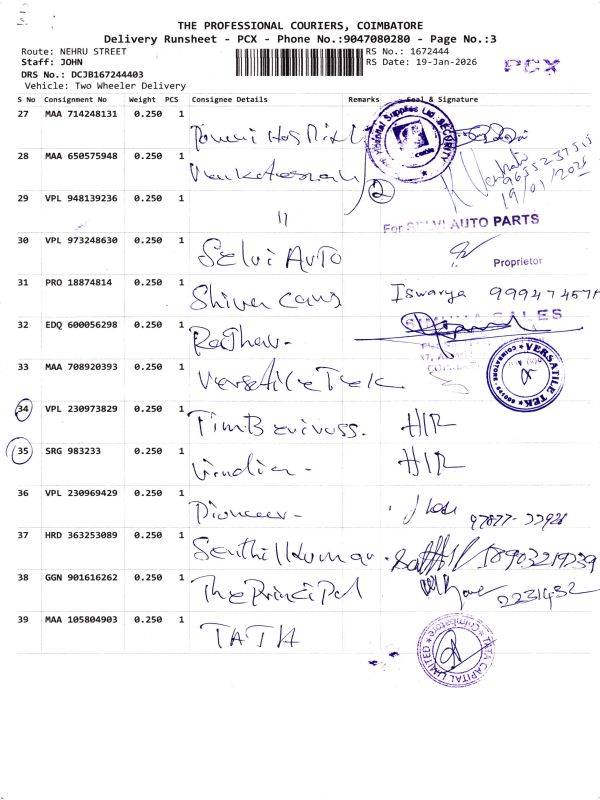 THE PROFESSIONAL COURIERS, COIMBATORE
Delivery Runsheet - PCX - Phone No.:9047080280 - Page No.:3
Route: NEHRU STREET
RS No.: 1672444
Staff: JOHN
RS Date: 19-Jan-2026
PCX
DRS No.: DCJB167244403
Vehicle: Two Wheeler Delivery
S No Consignment No Weight PCS Consignee Details Remarks Seal & Signature
27 MAA 714248131 0.250 1
28 MAA 650575948 0.250 1
2
19/01/2026
29 VPL 948139236 0.250 1 11
For SELVI AUTO PARTS
30 VPL 973248630 0.250 1 Selvi Auto
Proprietor
31 PRO 18874814 0.250 1 Iswarya
32 EDQ 600056298 0.250 1 Raghav-
SALES
33 MAA 708920393 0.250 1 Versatile Tek
VERSATILE TEK
COIMBATORE
34 VPL 230973829 0.250 1 H/R
35 SRG 983233 0.250 1 H/R
36 VPL 230969429 0.250 1 Pioneer-
37 HRD 363253089 0.250 1 Senthilkumar
38 GGN 901616262 0.250 1 The Principal
2231432
39 MAA 105804903 0.250 1 TATA
TATA CAPITAL LIMITED
Coimbatore